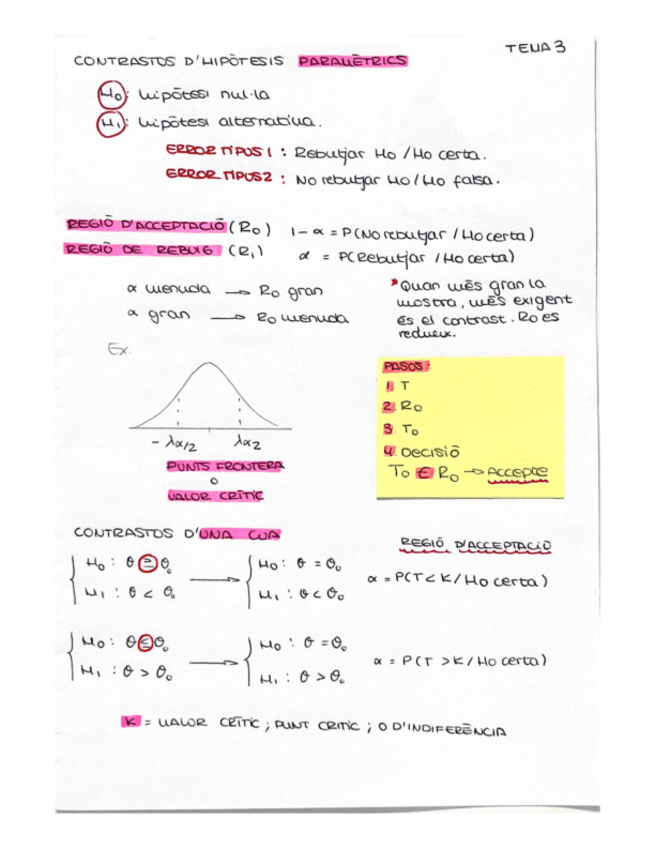 TEMA 3
CONTRASTOS D'HIPÒTESIS PARAMÈTRICS
H0: hipòtesi nul·la
H1: hipòtesi alternativa.
ERROR TIPUS 1 : Rebutjar H0 / H0 certa.
ERROR TIPUS 2 : No rebutjar H0 / H0 falsa.
REGIÓ D'ACCEPTACIÓ (R0) 1-α = P(No rebutjar / H0 certa)
REGIÓ DE REBUIG (R1) α = P(Rebutjar / H0 certa)
α menuda → R0 gran
α gran → R0 menuda
*Quan més gran la
mostra, més exigent
és el contrast. R0 es
redueix.
Ex.
-λα/2 λα2
PUNTS FRONTERA
o
VALOR CRÍTIC
PASOS:
1. T
2. R0
3. T0
4. DECISIÓ
T0 ∈ R0 → Accepte
CONTRASTOS D'UNA CUA
REGIÓ D'ACCEPTACIÓ
H0 : θ ≥ θ0 → H0 : θ = θ0
H1 : θ < θ0 H1 : θ < θ0
α = P(T < K / H0 certa)
H0 : θ ≤ θ0 → H0 : θ = θ0
H1 : θ > θ0 H1 : θ > θ0
α = P(T > K / H0 certa)
K = VALOR CRÍTIC ; PUNT CRITIC ; O D'INDIFERÈNCIA